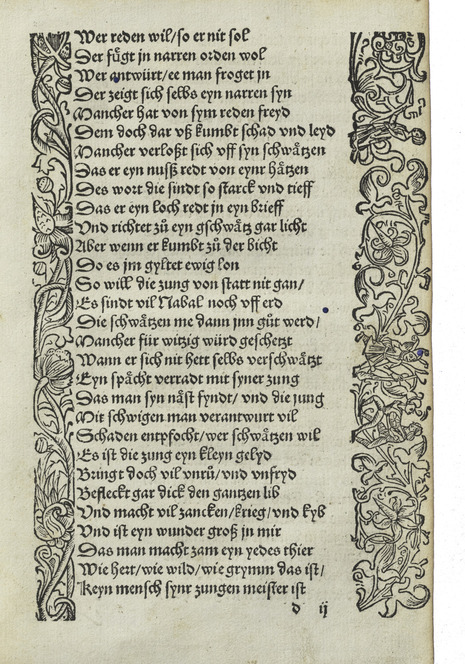 Wer reden wil/so er nit sol
Der fuͤgt jn narren orden wol
Wer antwuͤrt/ee man froget jn
Der zeigt sich selbs eyn narren syn
Mancher hat von sym reden freyd
Dem doch dar vß kumbt schad vnd leyd
Mancher verloßt sich vff syn schwaͤtzen
Das er eyn nuſß redt von eynr haͤtzen
Des wort die sindt so starck vnd tieff
Das er eyn loch redt in eyn brieff
Vnd richtet zuͤ eyn gschwaͤtz gar licht
Aber wenn er kumbt zuͤ der bicht
So es jm gyltet ewig lon
So will die zung von statt nit gan/
Es sindt vil Nabal noch vff erd
Die schwaͤtzen me dann jnn guͤt werd/
Mancher für witzig würd geschetzt
Wann er sich nit hett selbs verschwaͤtzt
Eyn spaͤcht verradt mit syner zung
Das man syn naͤst fyndt/ vnd die jung
Mit schwigen man verantwurt vil
Schaden entpfocht/wer schwaͤtzen wil
Es ist die zung eyn kleyn gelyd
Bringt doch vil vnrů/vnd vnfryd
Befleckt gar dick den gantzen lib
Vnd macht vil zancken/krieg/vnd kyb
Vnd ist eyn wunder groß in mir
Das man macht zam eyn yedes thier
Wie hert/wie wild/wie grymm das ist/
Keyn mensch synr zungen meister ist
d ij